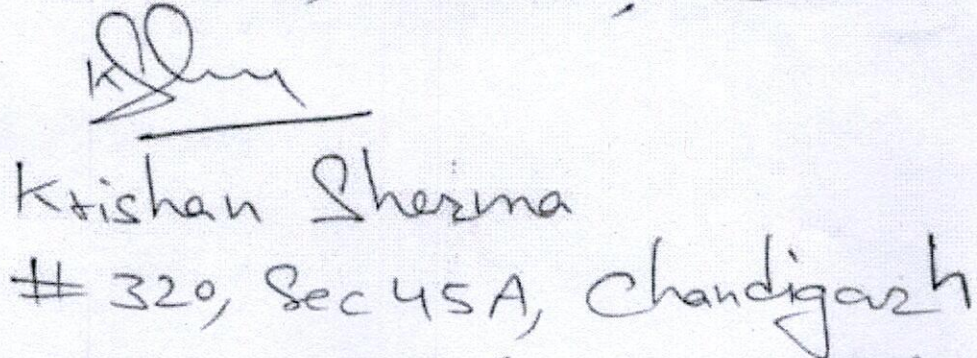 Krishan Sharma
# 320, Sec 45A, Chandigarh